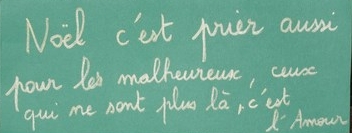 Noël c'est prier aussi
pour les malheureux, ceux
qui ne sont plus là, c'est
l'Amour